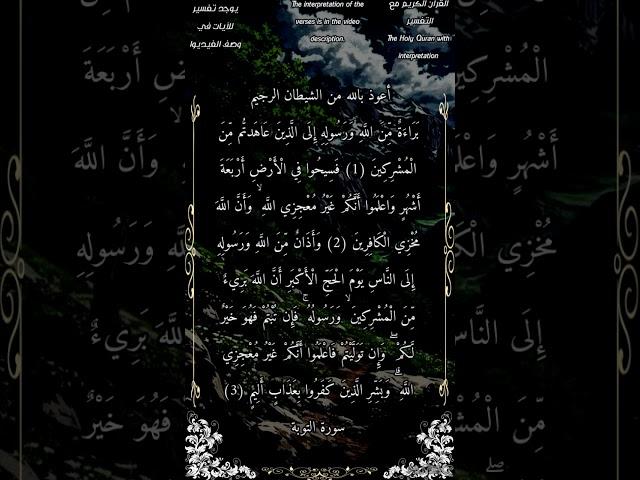 القرآن الكريم مع
التفسير
The Holy Quran with
interpretation
The interpretation of the
verses is in the video
description.
يوجد تفسير
للآيات في
وصف الفيديو
أعوذ بالله من الشيطان الرجيم
بَرَاءَةٌ مِّنَ اللَّهِ وَرَسُولِهِ إِلَى الَّذِينَ عَاهَدتُّم مِّنَ
الْمُشْرِكِينَ (1) فَسِيحُوا فِي الْأَرْضِ أَرْبَعَةَ
أَشْهُرٍ وَاعْلَمُوا أَنَّكُمْ غَيْرُ مُعْجِزِي اللَّهِ ۙ وَأَنَّ اللَّهَ
مُخْزِي الْكَافِرِينَ (2) وَأَذَانٌ مِّنَ اللَّهِ وَرَسُولِهِ
إِلَى النَّاسِ يَوْمَ الْحَجِّ الْأَكْبَرِ أَنَّ اللَّهَ بَرِيءٌ
مِّنَ الْمُشْرِكِينَ ۙ وَرَسُولُهُ ۚ فَإِن تُبْتُمْ فَهُوَ خَيْرٌ
لَّكُمْ ۖ وَإِن تَوَلَّيْتُمْ فَاعْلَمُوا أَنَّكُمْ غَيْرُ مُعْجِزِي
اللَّهِ ۗ وَبَشِّرِ الَّذِينَ كَفَرُوا بِعَذَابٍ أَلِيمٍ (3)
سورة التوبة